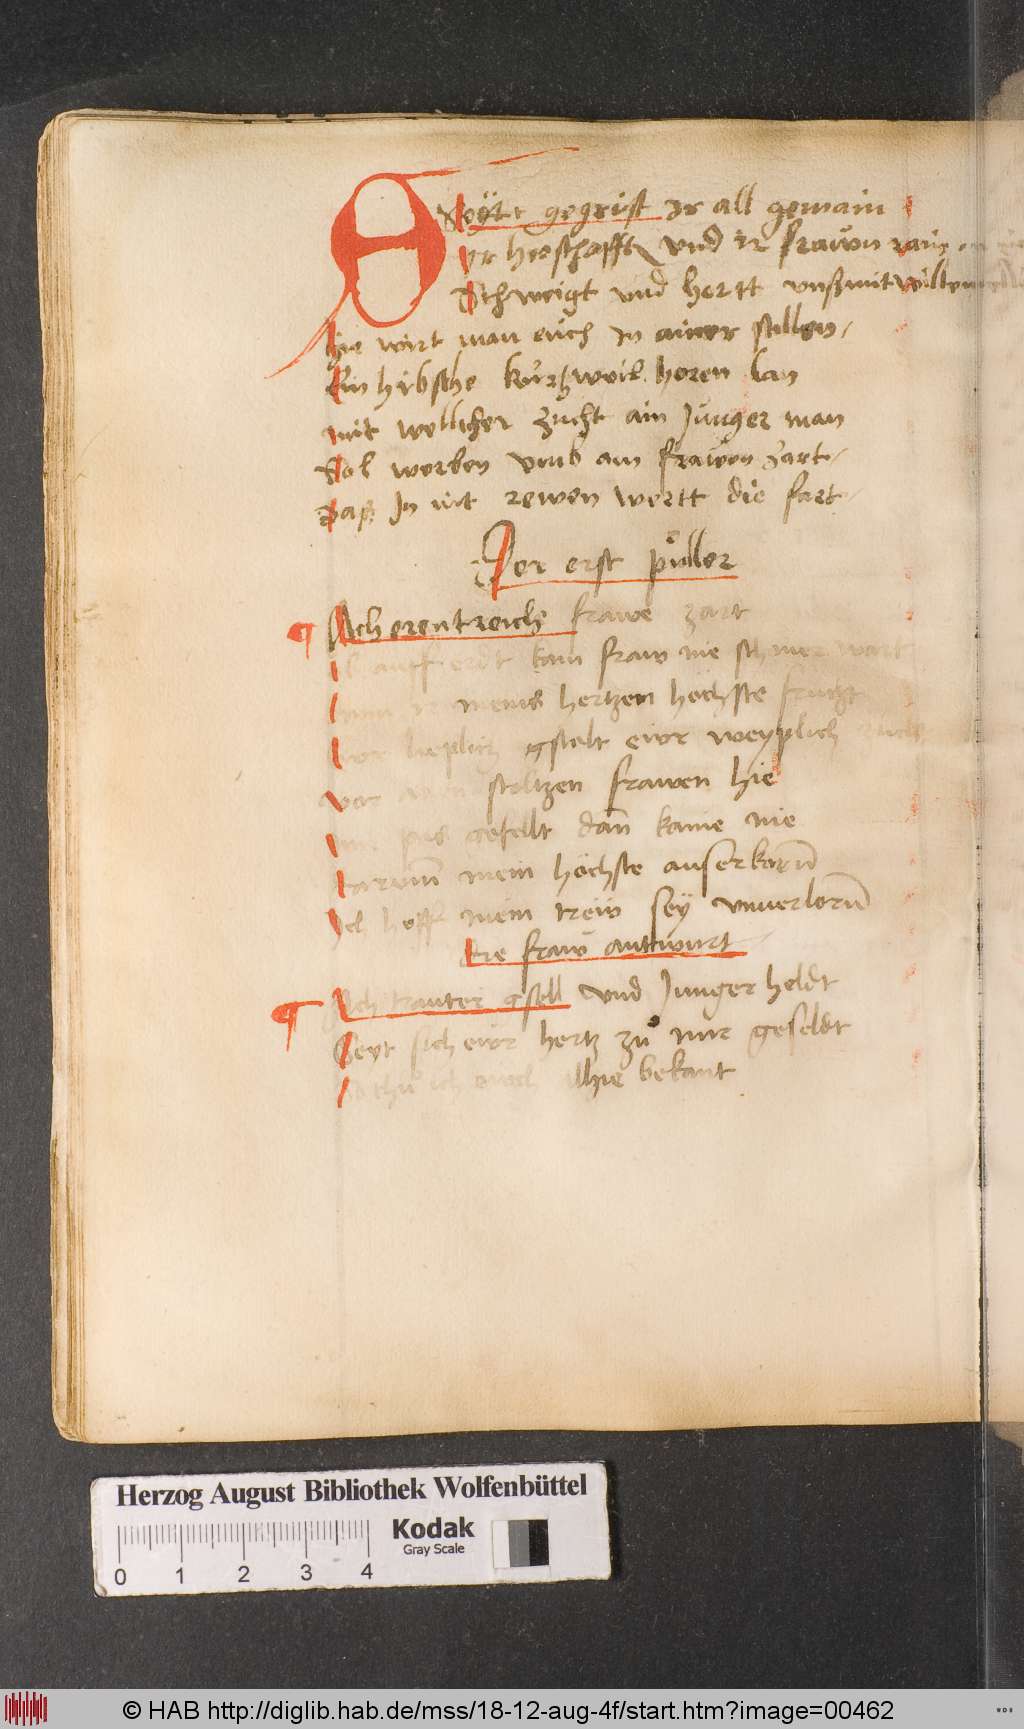 Seÿtt gegrüst Ir all gemain
Ir herschafft und ir frawen rain
Schweigt und hortt unß mit willen
hie wirt man euch In ainer stillen
Ein hibsche kurtzweil horen lan
mit wellicher zucht ain Junger man
Sol werben umb ain frawen zart
Das In nit rewen wertt die fart
Der erst püller
Ach erentreich frawe zart
auff erdt kain fraw nie schmer wart
meins hertzen höchste frucht
lieplich gstalt ewr weyplich zucht
vor stoltzen frawen hie
pas gefellt dan kaine nie
darumb mein höchste auserkorn
Ich hoff mein trew sey unverlorn
Die fraw antwurt
Ach trauter gsell und Junger heldt
Seyt sich ewr hertz zu mir geseldt
thu ich euch alhie bekant
Herzog August Bibliothek Wolfenbüttel
Kodak
Gray Scale
0 1 2 3 4
© HAB http://diglib.hab.de/mss/18-12-aug-4f/start.htm?image=00462